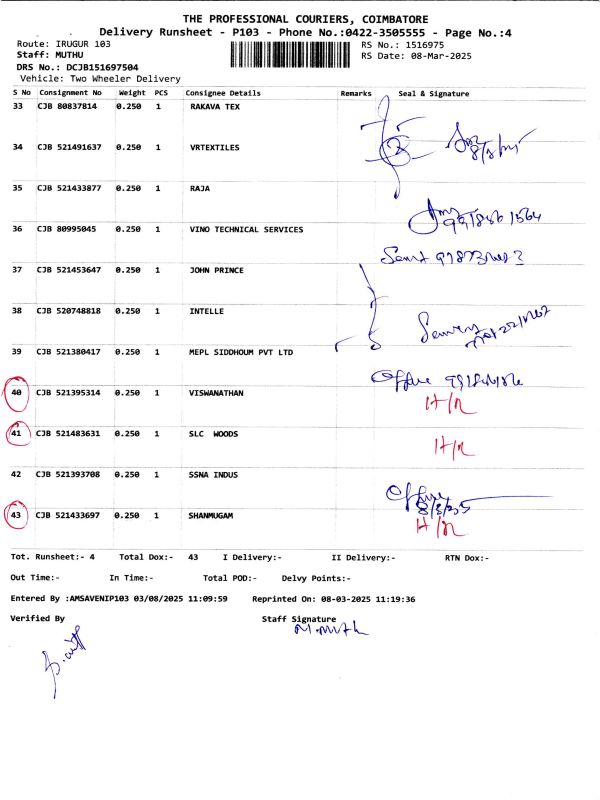 THE PROFESSIONAL COURIERS, COIMBATORE
Delivery Runsheet - P103 - Phone No.:0422-3505555 - Page No.:4
Route: IRUGUR 103 RS No.: 1516975
Staff: MUTHU RS Date: 08-Mar-2025
DRS No.: DCJB151697504
Vehicle: Two Wheeler Delivery
S No Consignment No Weight PCS Consignee Details Remarks Seal & Signature
33 CJB 80837814 0.250 1 RAKAVA TEX
34 CJB 521491637 0.250 1 VRTEXTILES
35 CJB 521433877 0.250 1 RAJA
36 CJB 80995045 0.250 1 VINO TECHNICAL SERVICES
37 CJB 521453647 0.250 1 JOHN PRINCE
38 CJB 520748818 0.250 1 INTELLE
39 CJB 521380417 0.250 1 MEPL SIDDHOUM PVT LTD
Office
40 CJB 521395314 0.250 1 VISWANATHAN
H/R
41 CJB 521483631 0.250 1 SLC WOODS
H/R
42 CJB 521393708 0.250 1 SSNA INDUS
Office
8/3/25
43 CJB 521433697 0.250 1 SHANMUGAM
H/R
Tot. Runsheet:- 4 Total Dox:- 43 I Delivery:- II Delivery:- RTN Dox:-
Out Time:- In Time:- Total POD:- Delvy Points:-
Entered By :AMSAVENIP103 03/08/2025 11:09:59 Reprinted On: 08-03-2025 11:19:36
Verified By Staff Signature
M.muth